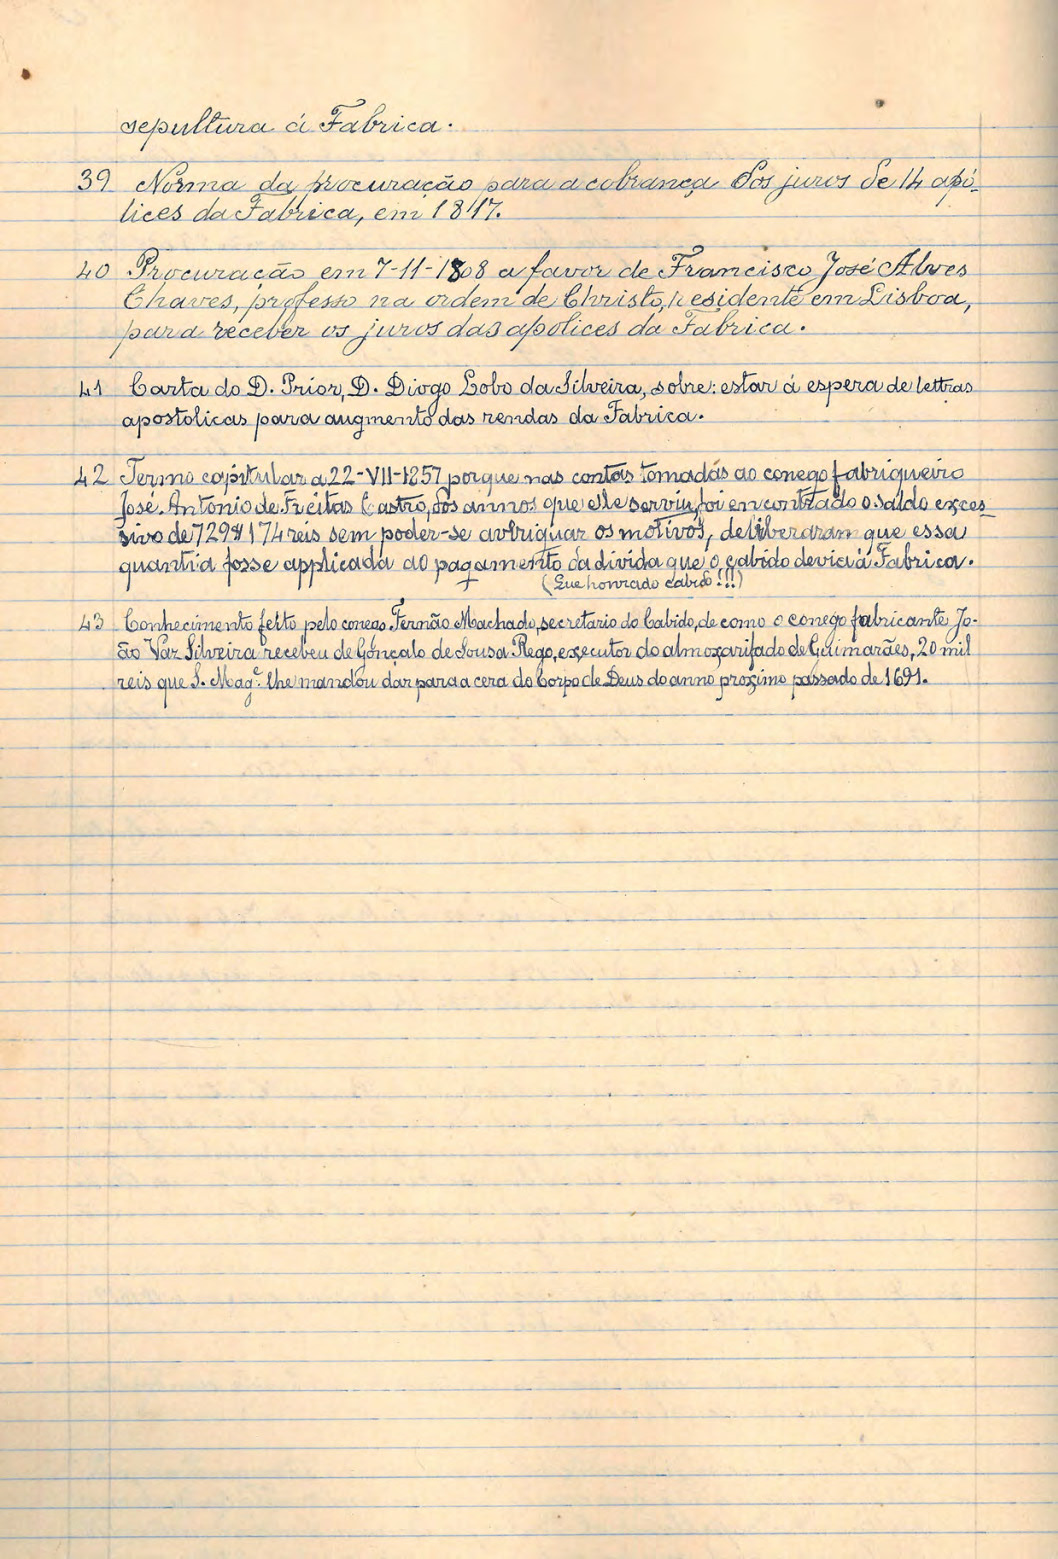 sepultura á Fabrica.
39 Norma da procuração para a cobrança dos juros de 14 apó-
lices da Fabrica, em 1817.
40 Procuração em 7-11-1808 a favor de Francisco José Alves
Chaves, professo na ordem de Christo, residente em Lisboa,
para receber os juros das apolices da Fabrica.
41 Carta do D. Prior, D. Diogo Lobo da Silveira, sobre: estar á espera de lettras
apostolicas para augmento das rendas da Fabrica.
42 Termo capitular a 22-VII-1857 porque nas contas tomadas ao conego fabriqueiro
José Antonio de Freitas Castro, dos annos que elle serviu, foi encontrado o saldo exces-
sivo de 729$174 reis sem poder-se averiguar os motivos, deliberaram que essa
quantia fosse applicada ao pagamento da divida que o cabido devia á Fabrica.
(Que honrado cabido!!!)
43 Conhecimento feito pelo conego Fernão Machado, secretario do Cabido, de como o conego fabricante Jo-
ão Vaz Silveira recebeu de Gonçalo de Sousa Rego, executor do almoxarifado de Guimarães, 20 mil
reis que S. Mag.e lhe mandou dar para a cera do Corpo de Deus do anno proximo passado de 1691.